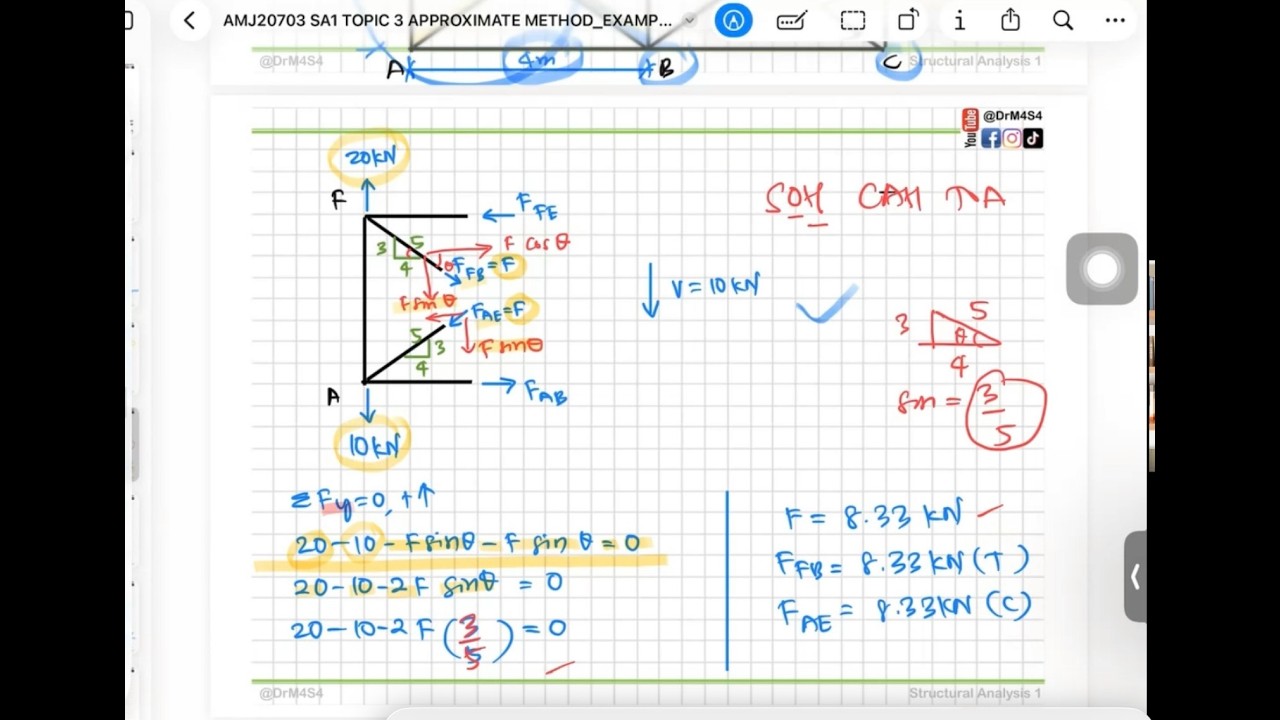 AMJ20703 SA1 TOPIC 3 APPROXIMATE METHOD_EXAMP...
@DrM4S4
A
4m
B
C
Structural Analysis 1
YouTube
@DrM4S4
20kN
F
F FE
SOH CAH TOA
3
5
4
F cos θ
θ
F FB = F
F sin θ
V = 10 kN
F AE = F
5
3
4
F sin θ
3
5
θ
4
A
F AB
sin = 3/5
10 kN
ΣFy = 0, +↑
20 - 10 - F sin θ - F sin θ = 0
20 - 10 - 2F sin θ = 0
20 - 10 - 2F (3/5) = 0
F = 8.33 kN
F FB = 8.33 kN (T)
F AE = 8.33 kN (C)
@DrM4S4
Structural Analysis 1